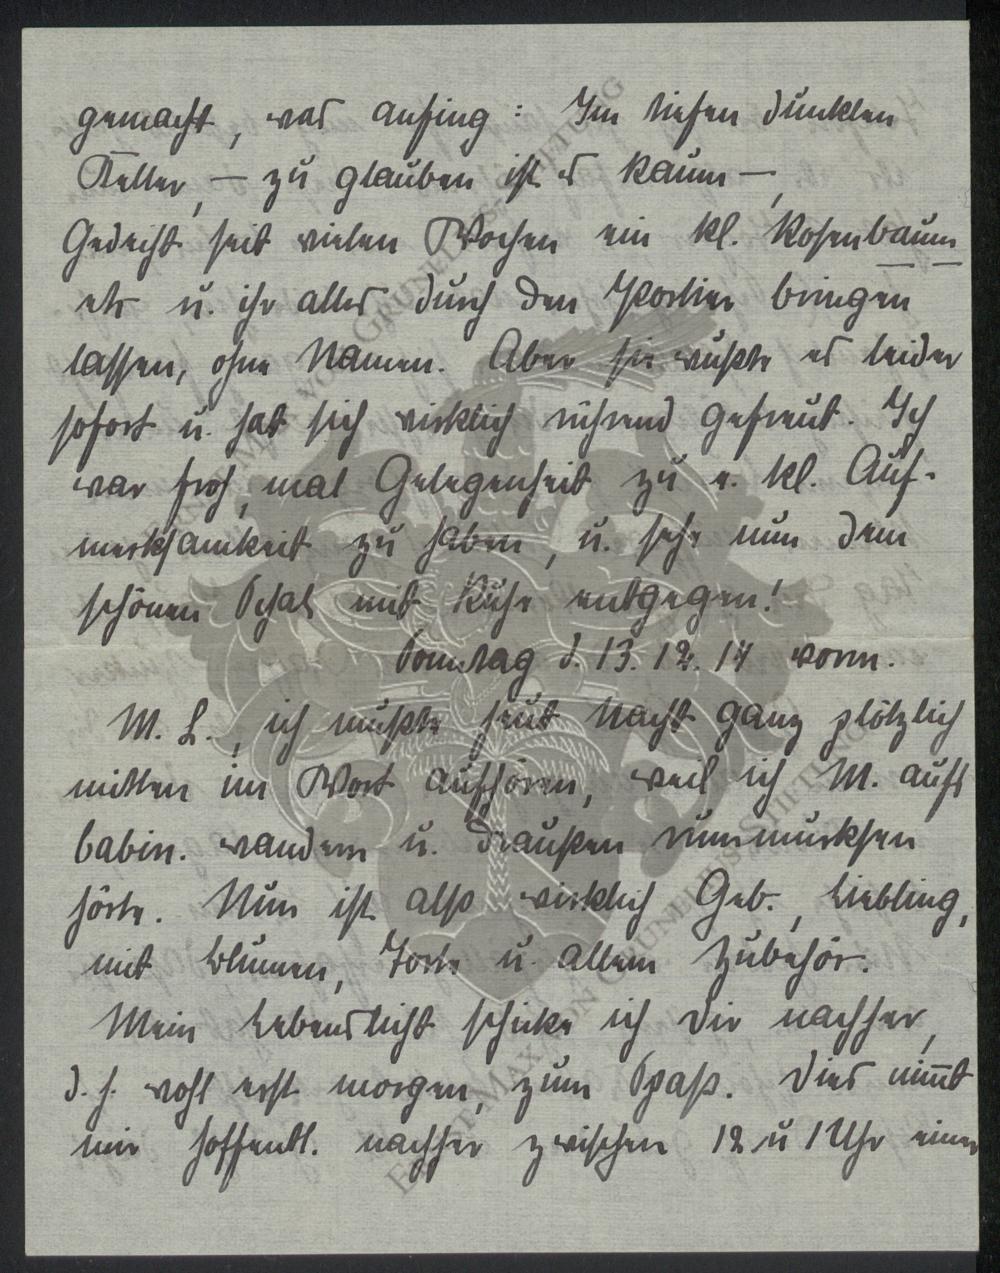 gemacht, was anfing: Im tiefen dunklen
Keller, – zu glauben ist es kaum –,
Gedeiht seit vielen Wochen ein kl. Rosenbaum
etc u. ihr alles durch den Portier bringen
lassen, ohne Namen. Aber sie wußte es leider
sofort u. hat sich wirklich rührend gefreut. Ich
war froh, mal Gelegenheit zu e. kl. Auf-
merksamkeit zu haben, u. sehe nun dem
schönen Schal mit Ruhe entgegen!
Sonntag d. 13. 12. 14 vorm.
M. L., ich mußte heut Nacht ganz plötzlich
mitten im Wort aufhören, weil ich M. aufs
wandern u. draußen rummurksen
hörte. Nun ist also wirklich Geb., Liebling,
mit Blumen, Torte u. allem Zubehör.
Mein Lebenslicht schicke ich Dir nachher,
d. h. wohl erst morgen, zum Spaß. Dies nimmt
mir hoffentl. nachher zwischen 12 u 1 Uhr einer
ERNST MAX VON GRUNELIUS-STIFTUNG
ERNST MAX VON GRUNELIUS-STIFTUNG